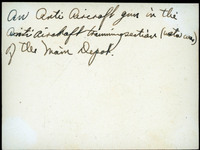 An Anti Aircraft gun in the
anti aircraft training section
of the Main Depot.